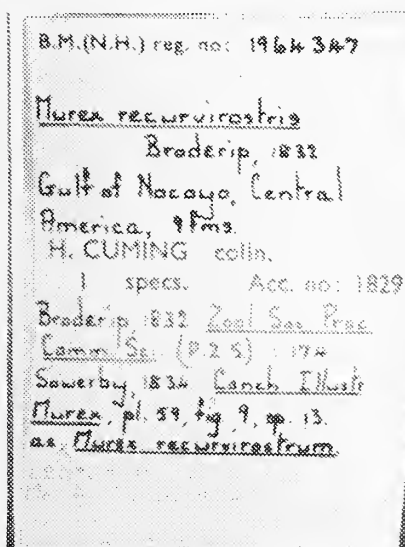 B.M.(N.H.) reg. no: 1964347
Murex recurvirostris
Broderip, 1832
Gulf of Nocoyo, Central
America, 9 fms.
H. CUMING colln.
1 specs. Acc. no: 1829
Broderip, 1832 Zool Soc Proc
Comm Sc. (P.2 S) : 174
Sowerby, 1834 Conch Illustr
Murex, pl. 59, fig. 9, sp. 13.
as Murex recurvirostrum